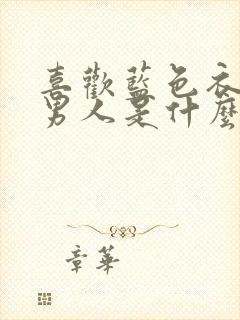 喜歡藍色衣
男人是什麼
章華